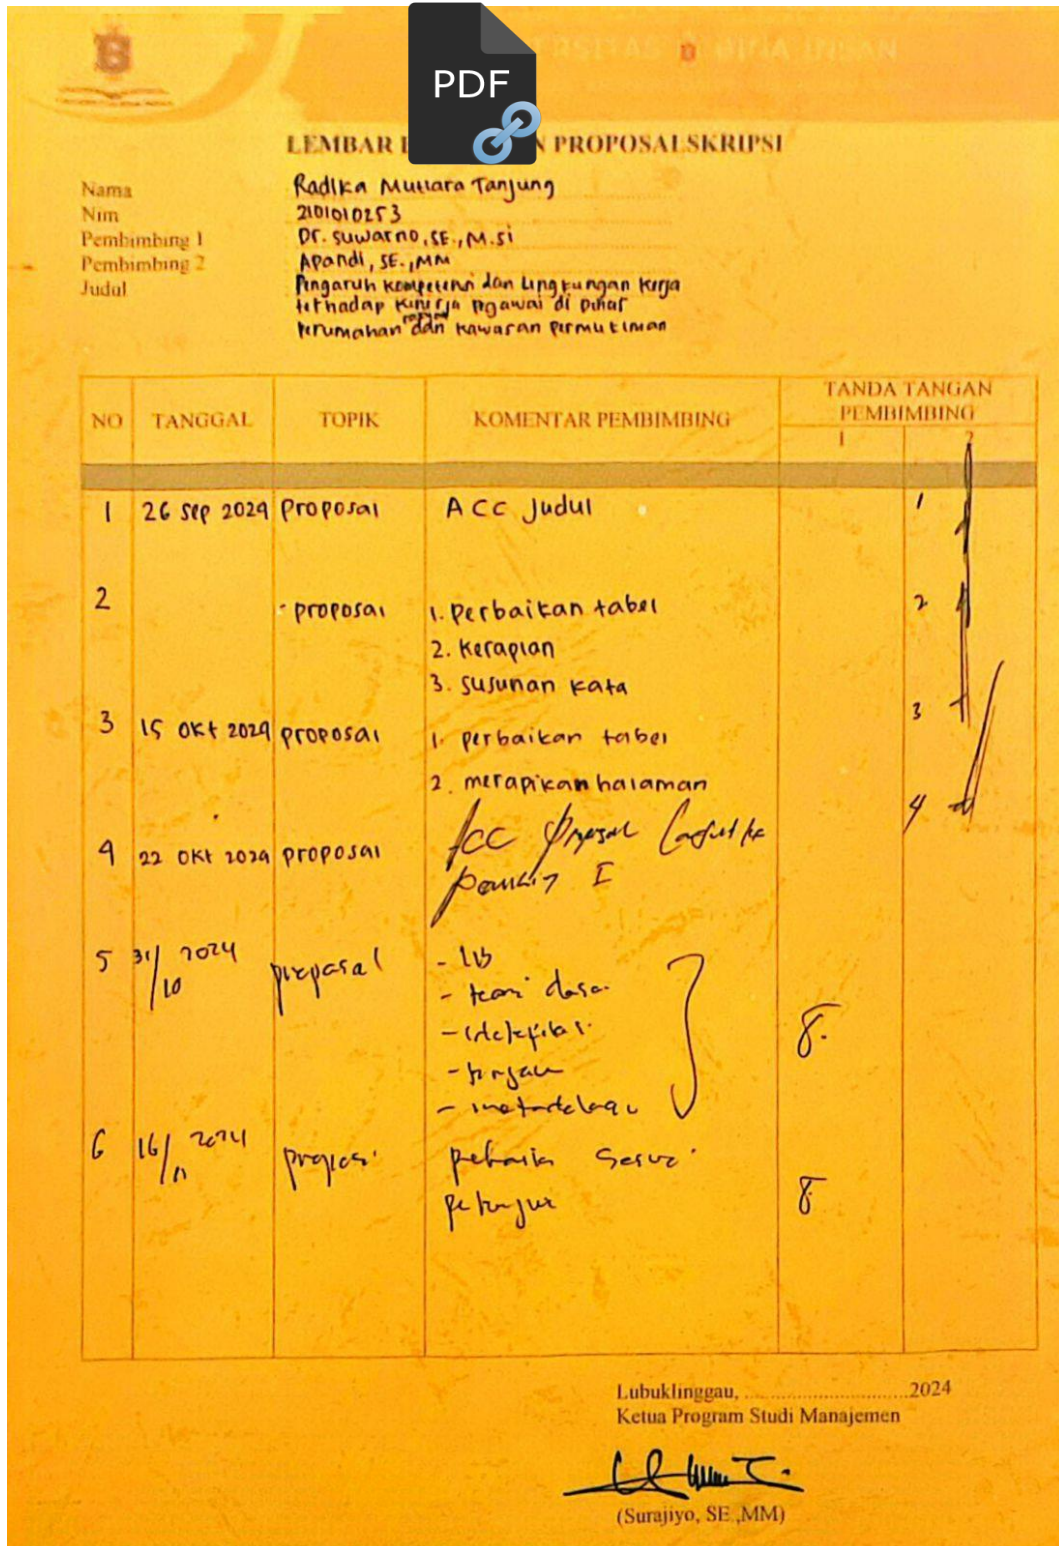 PDF
ERSITAS B BINA INSAN
LEMBAR N PROPOSALSKRIPSI
Nama Radika Mutiara Tanjung
Nim 2101010253
Pembimbing 1 Dr. Suwarno, SE., M.Si
Pembimbing 2 Apandi, SE., MM
Judul Pengaruh Kompetensi dan Lingkungan Kerja
terhadap Kinerja Pegawai di Dinas
Perumahan dan Kawasan Permukiman
NO TANGGAL TOPIK KOMENTAR PEMBIMBING TANDA TANGAN PEMBIMBING
1 2
1 26 Sep 2024 Proposal ACC Judul 1
2 - proposal 1. perbaikan tabel 2
2. kerapian
3. susunan kata
3 15 Okt 2024 proposal 1. perbaikan tabel 3
2. merapikan halaman
4 22 Okt 2024 proposal Acc proposal lanjut ke 4
I
5 31/10 2024 proposal - LB
- teori dasar
- metodologi
6 16/11 2024 proposal
Lubuklinggau, ..................................2024
Ketua Program Studi Manajemen
(Surajiyo, SE.,MM)